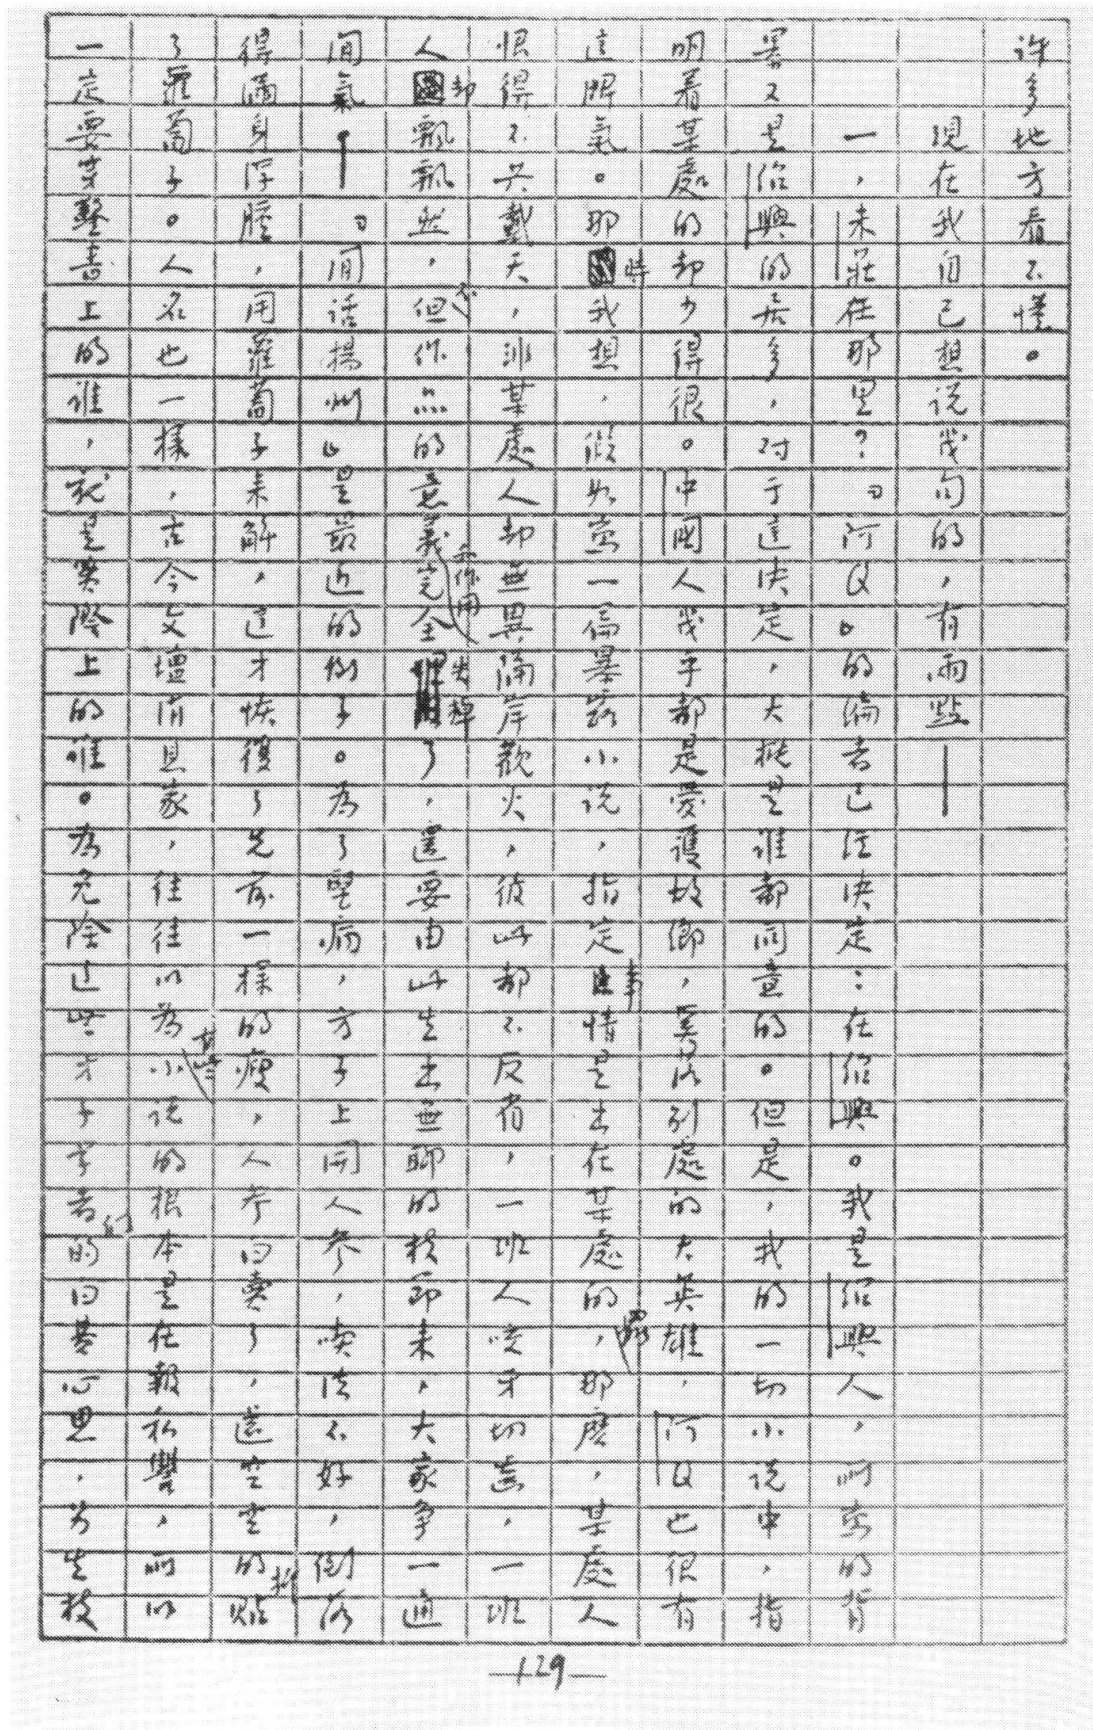 许多地方看不懂。
現在我自己想说幾句的，有兩點——
一，未莊在那里？『阿Q』的编者已经决定：在绍興。我是绍興人，所写的背
景又是绍興的居多，对于這决定，大概是谁都同意的。但是，我的一切小说中，指
明着某處的却少得很。中國人幾乎都是愛護故鄉，奚落别處的大英雄，阿Q也很有
這脾氣。那時我想，假如写一篇暴露小说，指定事情是出在某處的，那麽，某處人
恨得不共戴天，非某處人却無異隔岸觀火，彼此都不反省，一班人咬牙切齒，一班
人却飄飄然，不但作品的意義和作用完全失掉了，還要由此生出無聊的枝節來，大家争一通
闲氣——『闲话揚州』是最近的例子。為了醫病，方子上開人参，喫法不好，倒落
得滿身浮腫，用蘿蔔子來解，這才恢復了先前一樣的瘦，人参白賣了，還空空的折贴
了蘿蔔子。人名也一樣，古今文壇消息家，往往以為有些小说的根本是在報私讐，所以
一定要穿鑿書上的谁，就是實際上的谁。為免除這些才子学者們的白费心思，另生枝
129